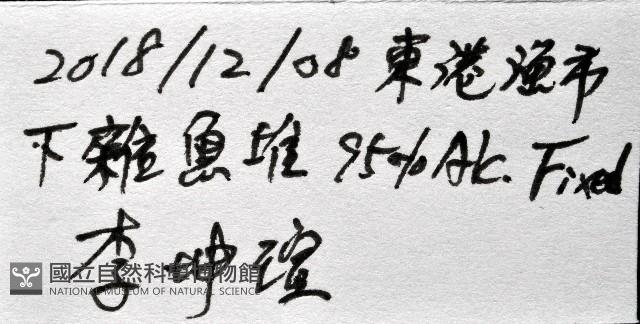 2018/12/08 東港漁市
下雜魚堆 95% Alc. Fixed
李坤瑄
國立自然科學博物館
NATIONAL MUSEUM OF NATURAL SCIENCE